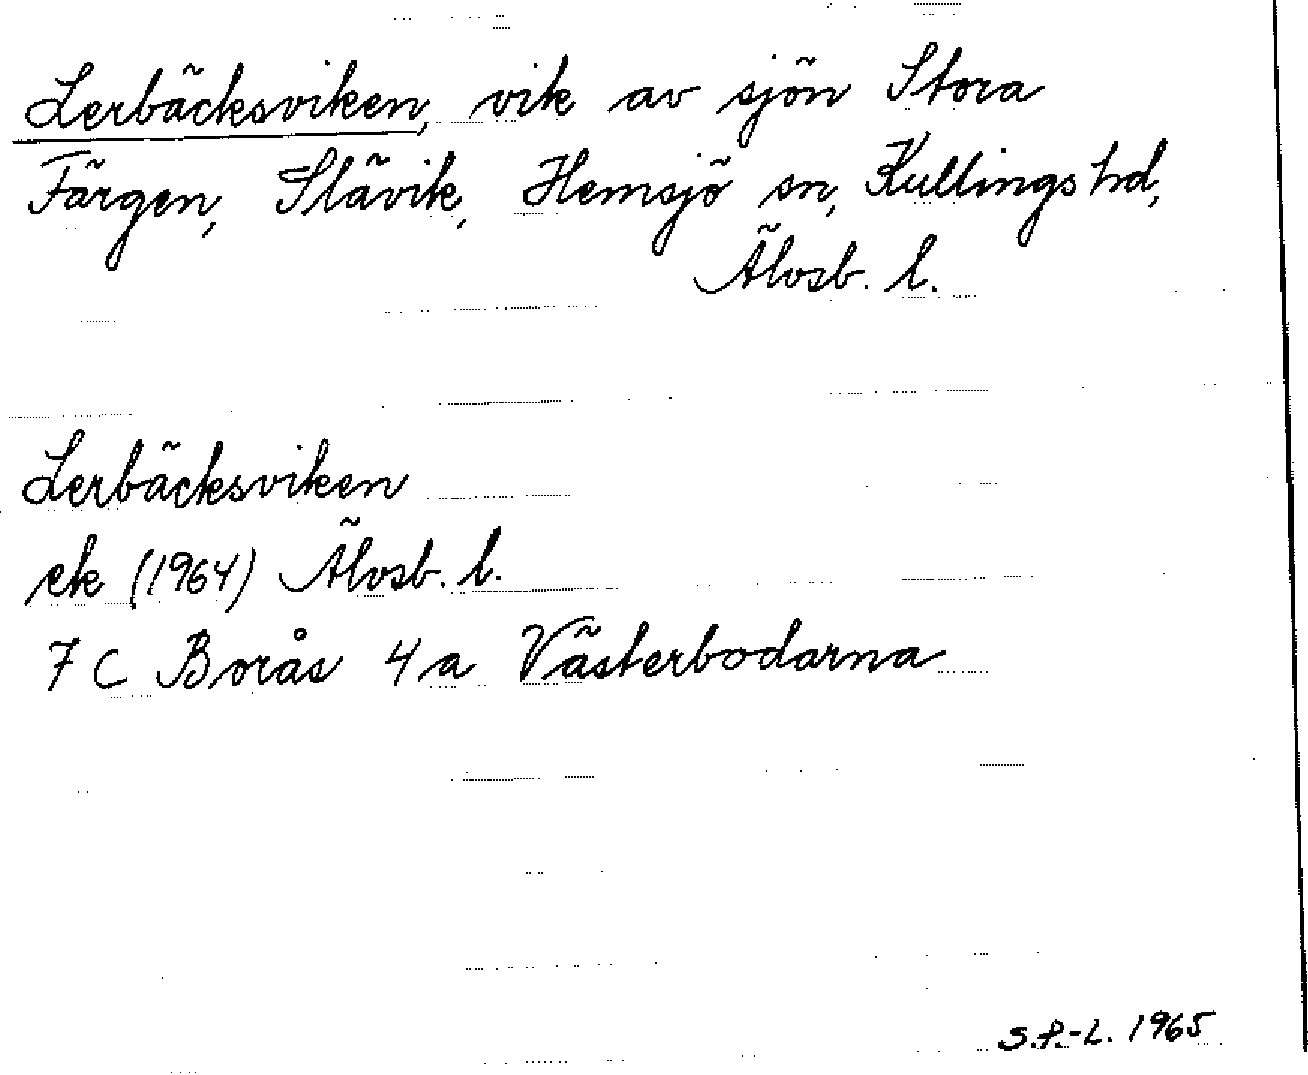 Lerbäcksviken, vik av sjön Stora
Färgen, Slävik, Hemsjö sn, Kullings hd,
Älvsb. l.
Lerbäcksviken
ek (1964) Älvsb. l.
7 C Borås 4 a Västerbodarna
S.P.-L. 1965